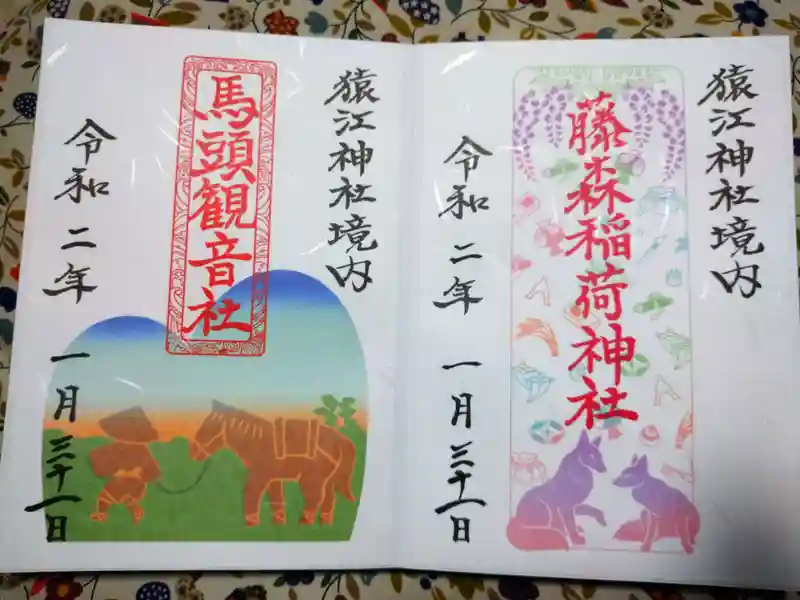 猿江神社境内
藤森稲荷神社
令和二年 一月三十一日
猿江神社境内
馬頭観音社
令和二年 一月三十一日